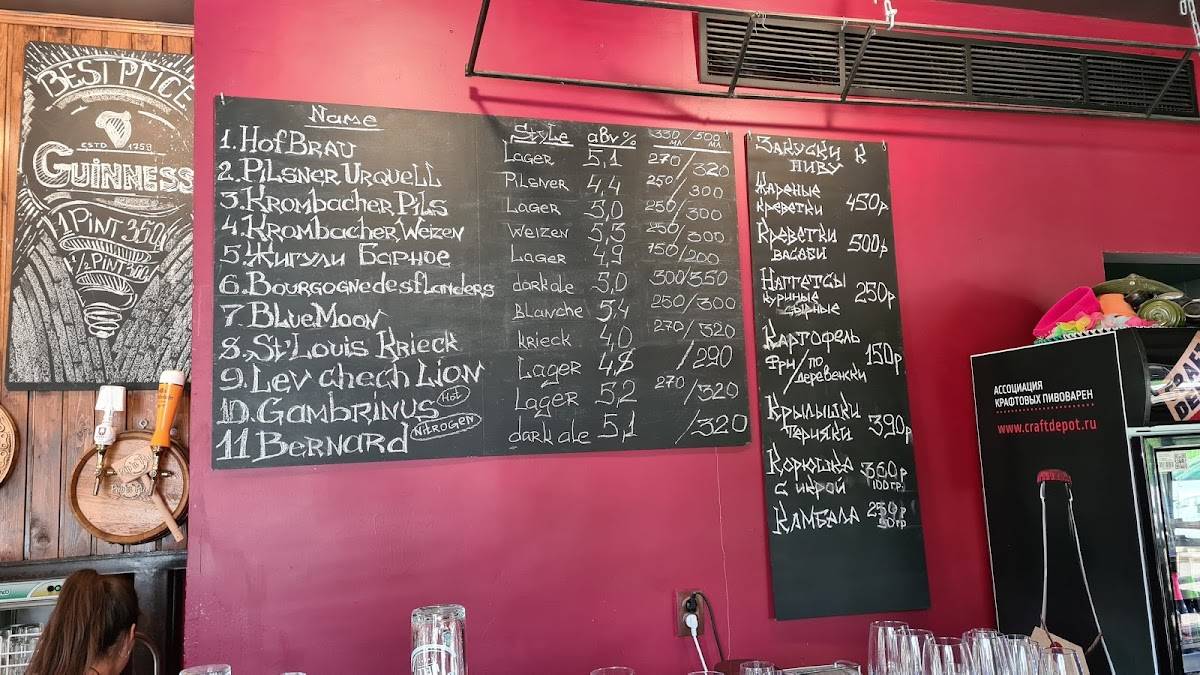 BEST PTICE
ESTD 1759
GUINNESS
1 PINT 350
1/2 PINT 300
Name Style abv % 330/500 мл
1. HofBrau Lager 5,1 270/320
2. Pilsner Urquell Pilsner 4,4 250/300
3. Krombacher Pils Lager 5,0 250/300
4. Krombacher Weizen Weizen 5,3 250/300
5. Жигули Барное Lager 4,9 150/200
6. Bourgognedesflanders dark ale 5,0 300/350
7. Blue Moon Blanche 5,4 250/300
8. St'Louis Krieck krieck 4,0 270/320
9. Lev Chech Lion Lager /290
10. Gambrinus Hot Lager 5,2 270/320
11 Bernard Nitrogen dark ale 5,1 /320
Закуски к
пиву
Жареные
креветки 450р
Креветки
васаби 500р
Наггетсы
куриные
сырные 250р
Картофель
Фри/по
деревенски 150р
Крылышки
терияки 390р
Корюшка
с икрой 360р
100гр.
Камбала 250р
50гр
АССОЦИАЦИЯ
КРАФТОВЫХ ПИВОВАРЕН
www.craftdepot.ru